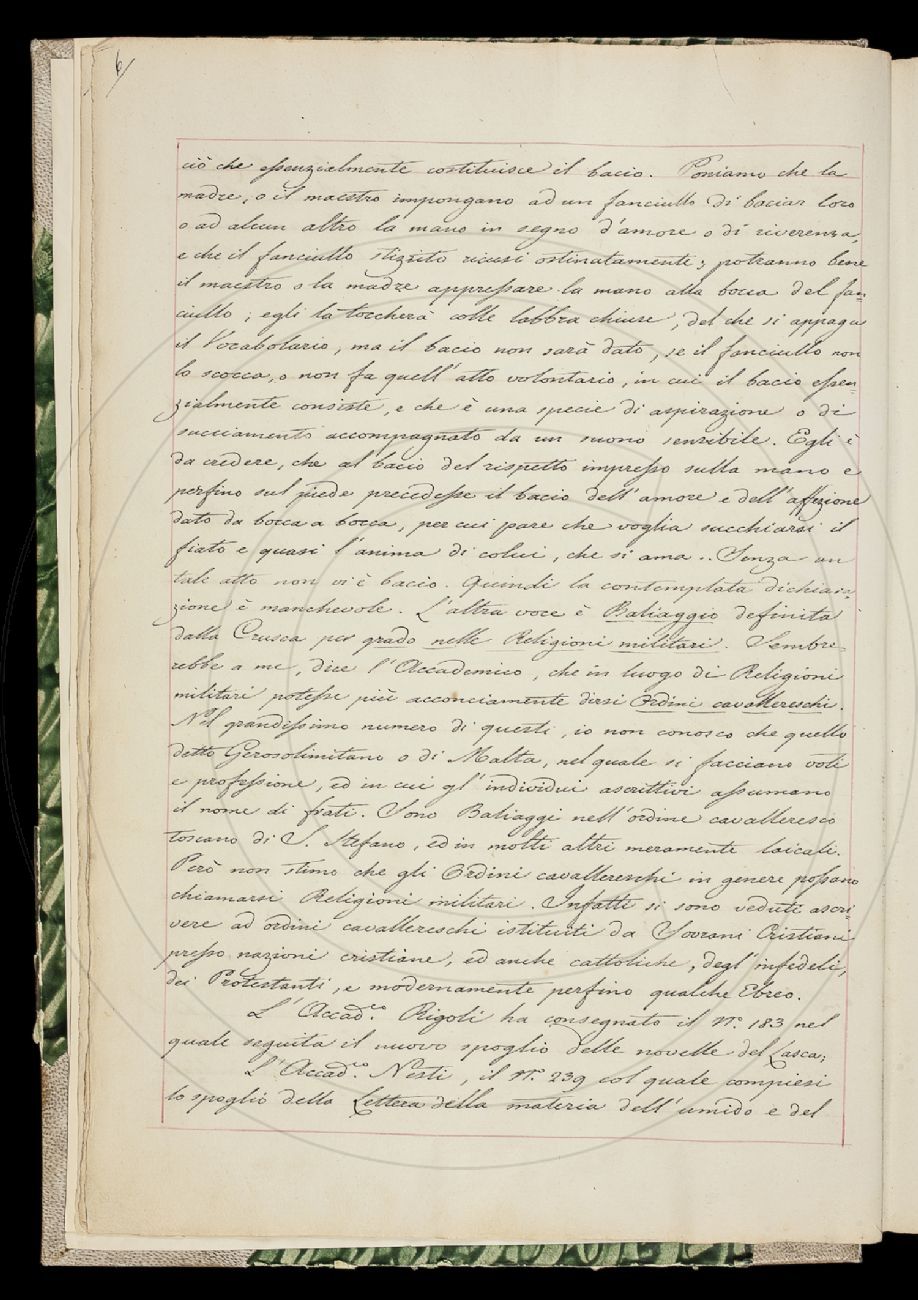 6/
ciò che essenzialmente costituisce il bacio. Poniamo che la
madre, o il maestro impongano ad un fanciullo di baciar loro
o ad alcun altro la mano in segno d'amore o di riverenza,
e che il fanciullo stizzito ricusi ostinatamente; potranno bene
il maestro o la madre appressare la mano alla bocca del fan=
ciullo; egli la toccherà colle labbra chiuse, del che si appaga
il Vocabolario, ma il bacio non sarà dato, se il fanciullo non
lo scocca, o non fa quell'atto volontario, in cui il bacio essen=
zialmente consiste, e che è una specie di aspirazione o di
succiamento accompagnato da un suono sensibile. Egli è
da credere, che al bacio del rispetto impresso sulla mano e
perfino sul piede precedesse il bacio dell'amore e dell'affezione
dato da bocca a bocca, per cui pare che voglia succhiarsi il
fiato e quasi l'anima di colui, che si ama.. Senza un
tale atto non vi è bacio. Quindi la contemplata dichiara=
zione è manchevole. L'altra voce è Baliaggio definita
dalla Crusca per grado nelle Religioni militari. Sembre=
rebbe a me, dice l'Accademico, che in luogo di Religioni
militari potesse più acconciamente dirsi Ordini cavallereschi.
Nel grandissimo numero di questi, io non conosco che quello
detto Gerosolimitano o di Malta, nel quale si facciano voti
e professione, ed in cui gl'individui ascrittivi assumano
il nome di frati. Sono Baliaggi nell'ordine cavalleresco
toscano di S. Stefano, ed in molti altri meramente laicali.
Però non stimo che gli Ordini cavallereschi in genere possano
chiamarsi Religioni militari. Infatti si sono veduti ascri=
vere ad ordini cavallereschi istituiti da Sovrani Cristiani
presso nazioni cristiane, ed anche cattoliche, degl'infedeli,
dei Protestanti, e modernamente perfino qualche Ebreo.
L'Accad.co Rigoli ha consegnato il N.o 183 nel
quale seguita il nuovo spoglio delle novelle del Lasca;
L'Accad.co Nesti, il N.o 239 col quale compiesi
lo spoglio della Lettera della materia dell'umido e del